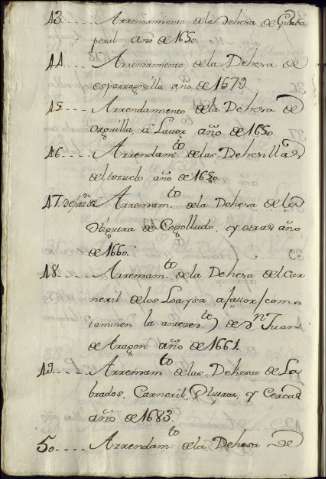 43.... Arrendamiento de la Dehesa de Guada
peral año de 1650
44.... Arrendamiento de la Dehesa de
esparragosilla año de 1679
45.... Arrendamiento de la Dehesa de
orquilla, â Lavor año de 1650
46.... Arrendam.to de las Dehesillas
del año de 1650
47 Arrendam.to de la Dehesa de la
de Cogolludo, y otras año
de 1660.
48.... Arrendam.to de la Dehesa del Car
neril de los Loaysa a favor /
la / de Dn Juan
de Aragon año de 1661
49.... Arrendam.to de las Dehesas de La
brados, Carneril, y Cercas
año de 1683
50.... Arrendam.to de la Dehesa de